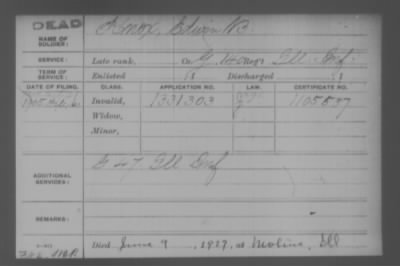 DEAD
NAME OF SOLDIER: Knox, Edwin B.
SERVICE: Late rank, Co. G, Ill. Inf.
TERM OF SERVICE: Enlisted 18 Discharged 18
DATE OF FILING. CLASS. APPLICATION NO. LAW. CERTIFICATE NO.
Invalid, 1331303 1105857
Widow,
Minor,
ADDITIONAL SERVICES: E 47 Ill Inf
REMARKS:
Died June 9, 1927, at Moline, Ill